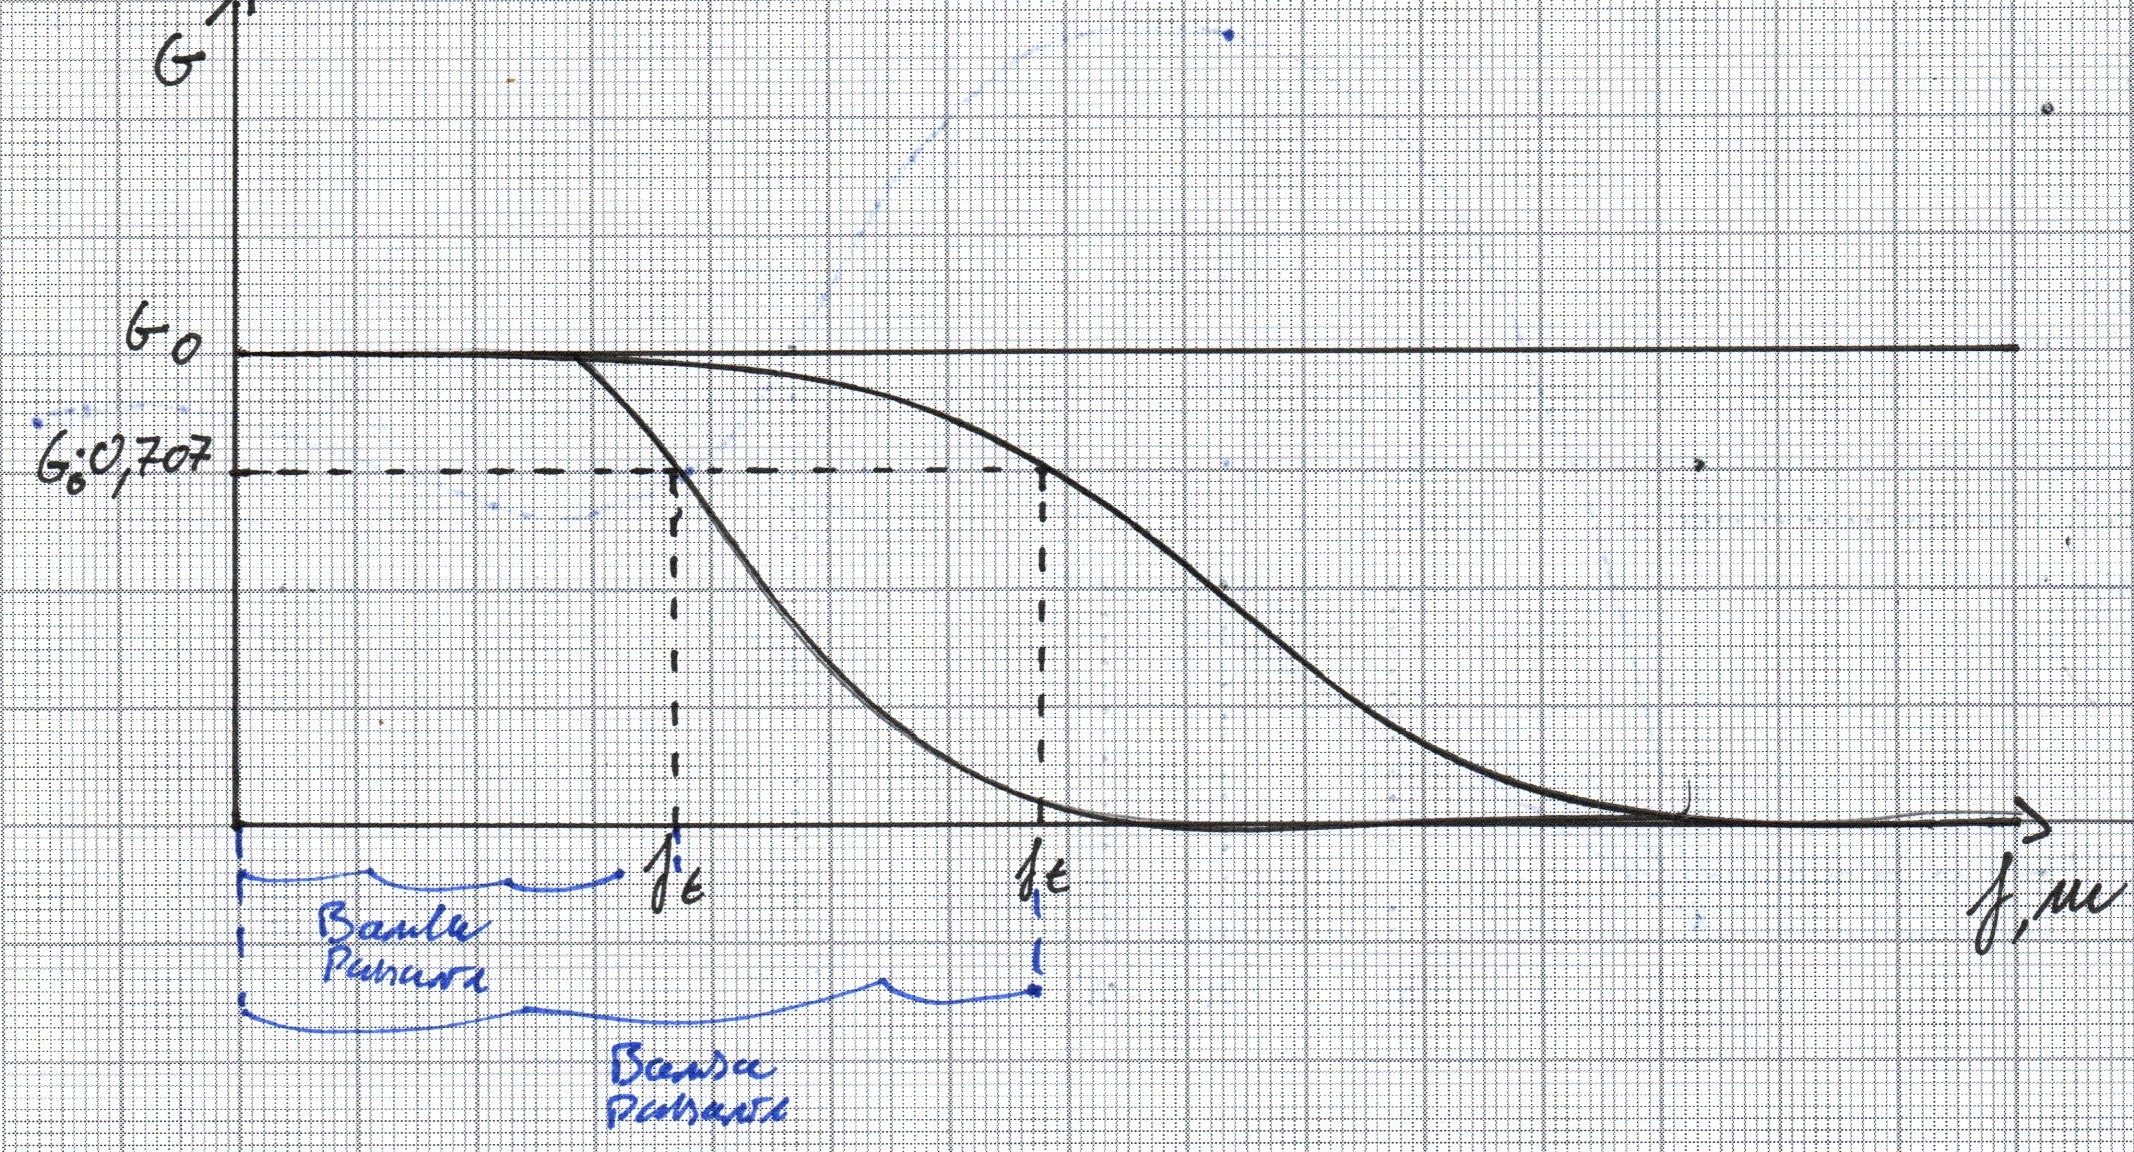 G
G0
G0·0,707
ft
ft
f, ω
Banda
Passante
Banda
Passante